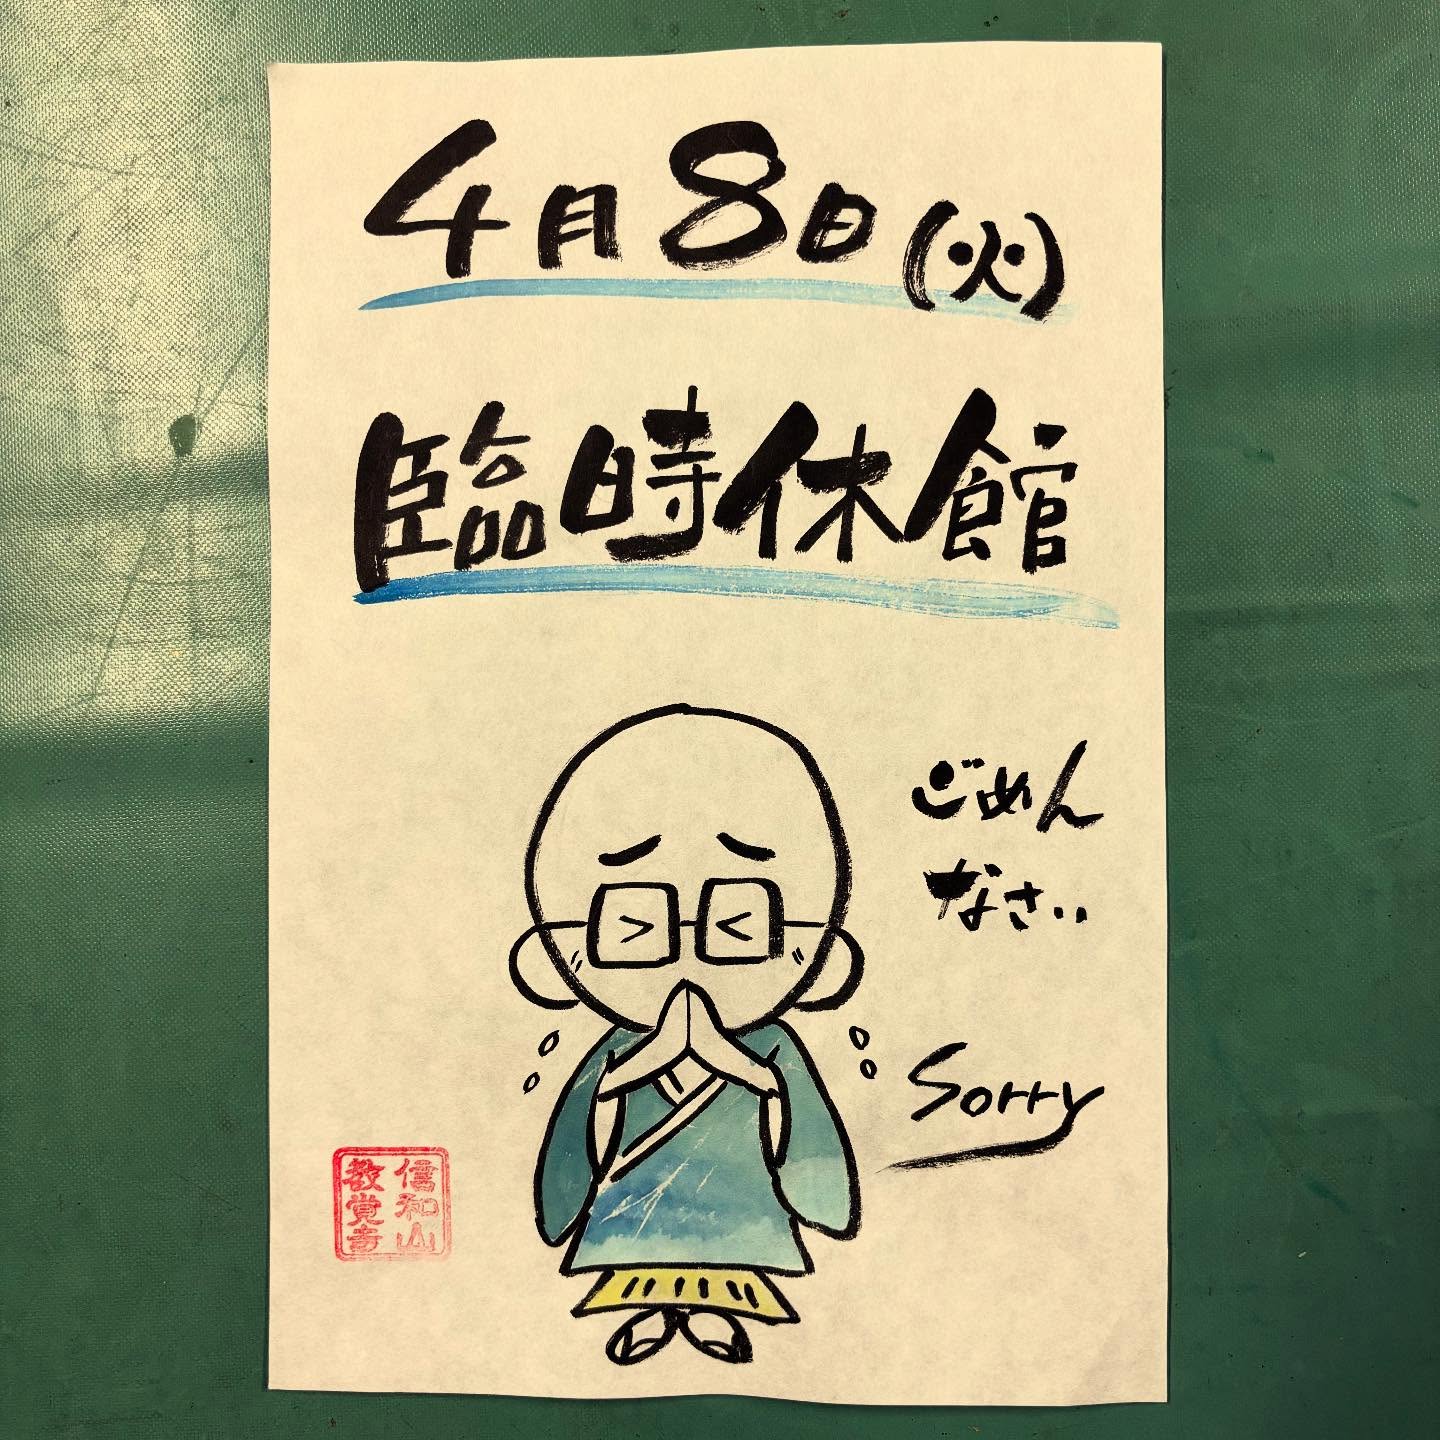 4月8日(火)
臨時休館
ごめん
なさい
Sorry
信和山
教覚寺